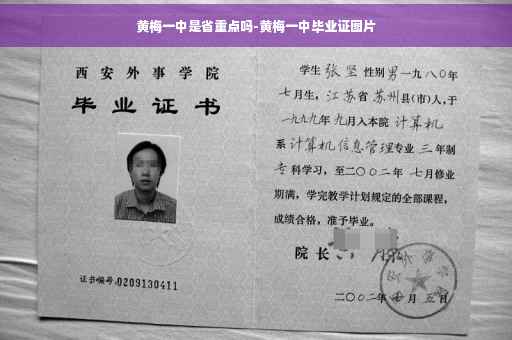 黄梅一中是省重点吗-黄梅一中毕业证图片
西安外事学院
毕业证书
证书编号:0209130411
学生 张坚 性别 男 一九八〇年
七月生，江苏省 苏州县(市)人，于
一九九九年 九月入本院 计算机
系 计算机信息管理专业 三 年制
专科学习，至二〇〇二年 七月修业
期满，学完教学计划规定的全部课程，
成绩合格，准予毕业。
院长
二〇〇二年 月 五日